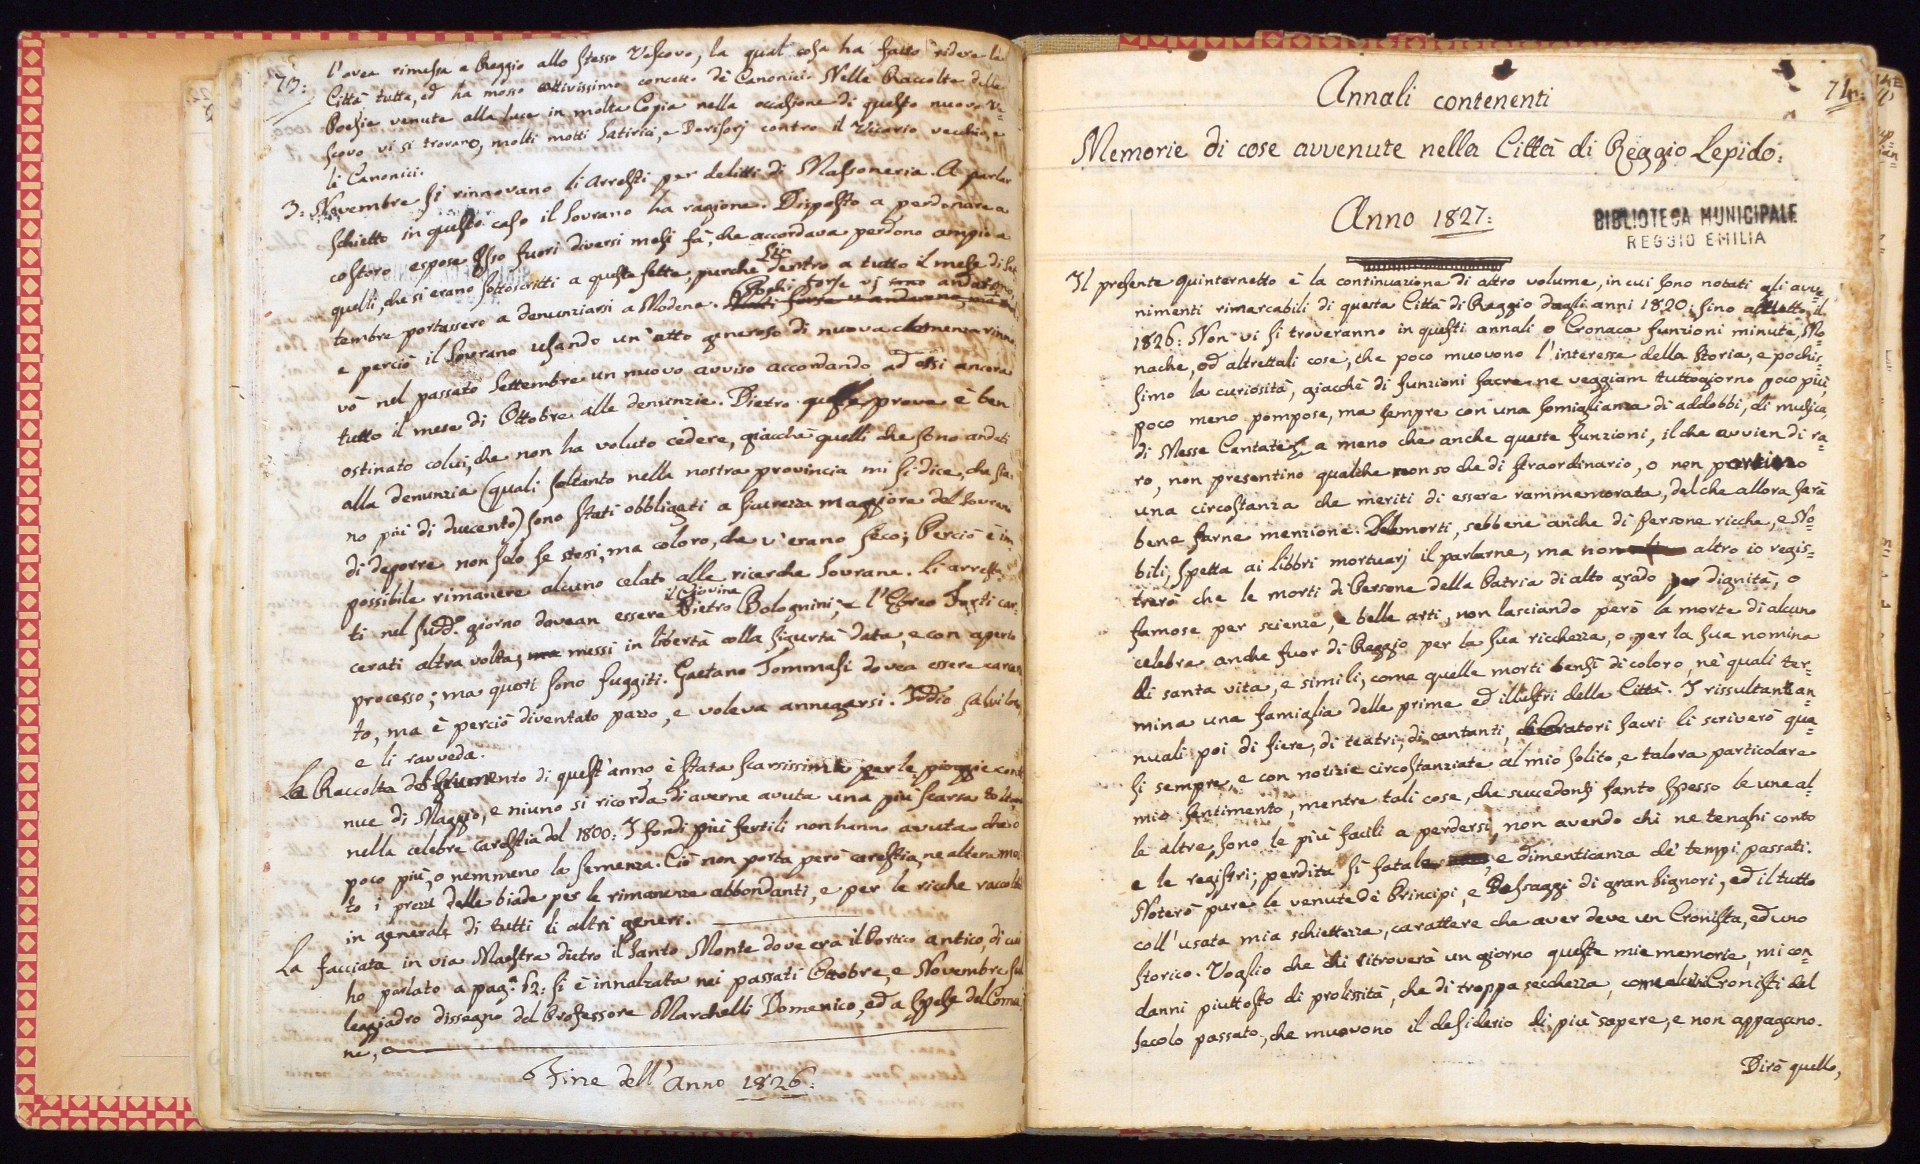 73:
l'avea rimessa a Reggio allo stesso Vescovo, la qual cosa ha fatto ridere la
Città tutta, ed ha mosso cattivissimo concetto di Canonici. Nelle Raccolte delle
Poesie venute alla luce in molta Copia nella occasione di questo nuovo Ve=
scovo vi si trovano, molti motti satirici, e Derisorj contro il Vicario vecchio, e
li Canonici.
3: Novembre si rinnovano li Arresti per delitti di Massoneria. A parlar
schietto in questo caso il Sovrano ha ragione. Disposto a perdonare a
costoro espose Esso fuori diversi mesi fà, che accordava perdono ampio a
quelli, che si erano sottoscritti a questa setta, purchè dentro a tutto il mese di Set
tembre portassero a denunziarsi a Modena. Pochi forse vi sono andati
e perciò il Sovrano usando un'atto generoso di nuova clemenza rinno
vò nel passato Settembre un nuovo avviso accordando ad essi ancora
tutto il mese di Ottobre alle denunzie. Dietro queste prove è ben
ostinato colui, che non ha voluto cedere, giacchè quelli che sono andati
alla denunzia (quali soltanto nella nostra provincia mi si dice, che sia
no più di ducento) sono stati obbligati a sicurezza maggiore del Sovrano
di deporre non solo se stessi, ma coloro, che v'erano seco; Perciò è im
possibile rimanere alcuno celato alle ricerche Sovrane. Li arresta
ti nel sudd.o giorno dovean essere il Giovine Pietro Bolognini, e l'Ebreo Forti car
cerati altra volta, messi in libertà colla sigurtà data, e con aperto
processo; ma questi sono fuggiti. Gaetano Tommasi dovea essere carcera
to, ma è perciò diventato pazzo, e voleva annegarsi. Iddio salvi loro,
e li ravveda.
La Raccolta del frumento di quest'anno è stata scarsissima per le pioggie conti
nue di Maggio, e niuno si ricorda di averne avuta una più scarsa toltone
nella celebre carestia del 1800: I fondi più fertili non hanno avuta che o
poco più, o nemmeno la semenza. Ciò non porta però carestia, ne altera mol
to i prezzi delle biade per le rimanenze abbondanti, e per le ricche raccolte
in generale di tutti li altri generi.
La facciata in via Maestra dietro il Santo Monte dove era il Portico antico, di cui
ho parlato a pag.a 62: si è innalzata nei passati Ottobre, e Novembre sul
leggiadro dissegno del Professore Marchelli Domenico, ed a spese del Comu
ne,
Fine dell'Anno 1826:
74:
Annali contenenti
Memorie di cose avvenute nella Città di Reggio Lepido:
Anno 1827:
BIBLIOTECA MUNICIPALE
REGGIO EMILIA
Il presente quinternetto è la continuazione di altro volume, in cui sono notati gli avve=
nimenti rimarcabili di questa Città di Reggio dagli anni 1820: sino a tutto il
1826: Non vi si troveranno in questi annali o Cronaca funzioni minute, Mo=
nache, od altrettali cose, che poco muovono l'interesse della Storia, e pochis=
simo la curiosità, giacchè di funzioni sacre ne veggiam tuttogiorno poco più,
poco meno pompose, ma sempre con una somiglianza di addobbi, di musica,
di Messe Cantate, a meno che anche queste funzioni, il che avvien di ra=
ro, non presentino qualche non so che di straordinario, o non portino
una circostanza che meriti di essere rammemorata, del che allora sarà
bene farne menzione. Dei morti, sebbene anche di persone ricche, e No=
bili, spetta ai Libbri mortuarj il parlarne, ma non altro io regis=
trerò che le morti di Persone della Patria di alto grado per dignità, o
famose per scienze, e belle arti, non lasciando però la morte di alcuno
celebre anche fuor di Reggio per la sua ricchezza, o per la sua nomina
di santa vita, e simili, come quelle morti bensì di coloro, ne' quali ter=
mina una famiglia delle prime ed illustri della Città. I rissultanti an=
nuali poi di fiere, di teatri, di cantanti, di Oratori sacri li scriverò qua
si sempre, e con notizie circostanziate al mio solito, e talora particolare
mio sentimento, mentre tali cose, che succedonsi tanto spesso le une al=
le altre, sono le più facili a perdersi, non avendo chi ne tenghi conto
e le registri; perdita sì fatale, e dimenticanza de' tempi passati.
Noterò pure le venute de' Principi, e Passaggi di gran Signori, ed il tutto
coll'usata mia schiettezza, carattere che aver deve un Cronista, ed uno
storico. Voglio che chi ritroverà un giorno queste mie memorie, mi con=
danni piuttosto di prolissità, che di troppa secchezza, come alcuni Cronisti del
secolo passato, che muovono il desiderio di più sapere, e non appagano.
Dirò quello,